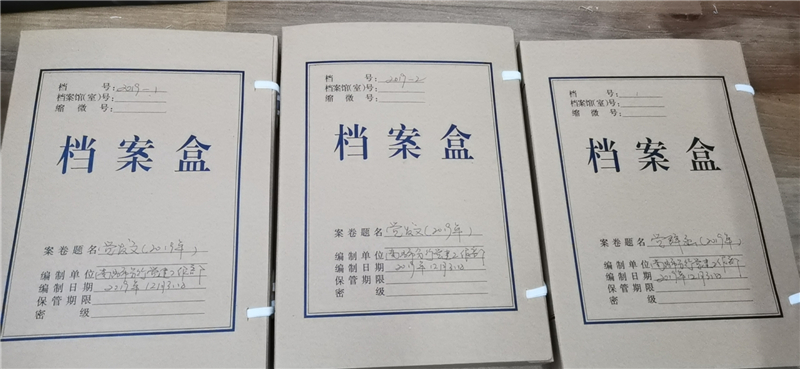 档 号：2019-1
档案馆(室)号：
缩 微 号：
档案盒
案卷题名 党发文(2019年)
编制单位
编制日期 2019年12月31日
保管期限
密 级
档 号：2019-2
档案馆(室)号：
缩 微 号：
档案盒
案卷题名 党发文(2019年)
编制单位
编制日期 2019年12月31日
保管期限
密 级
档 号：
档案馆(室)号：
缩 微 号：
档案盒
案卷题名 (2019年)
编制单位
编制日期 2019年12月31日
保管期限
密 级